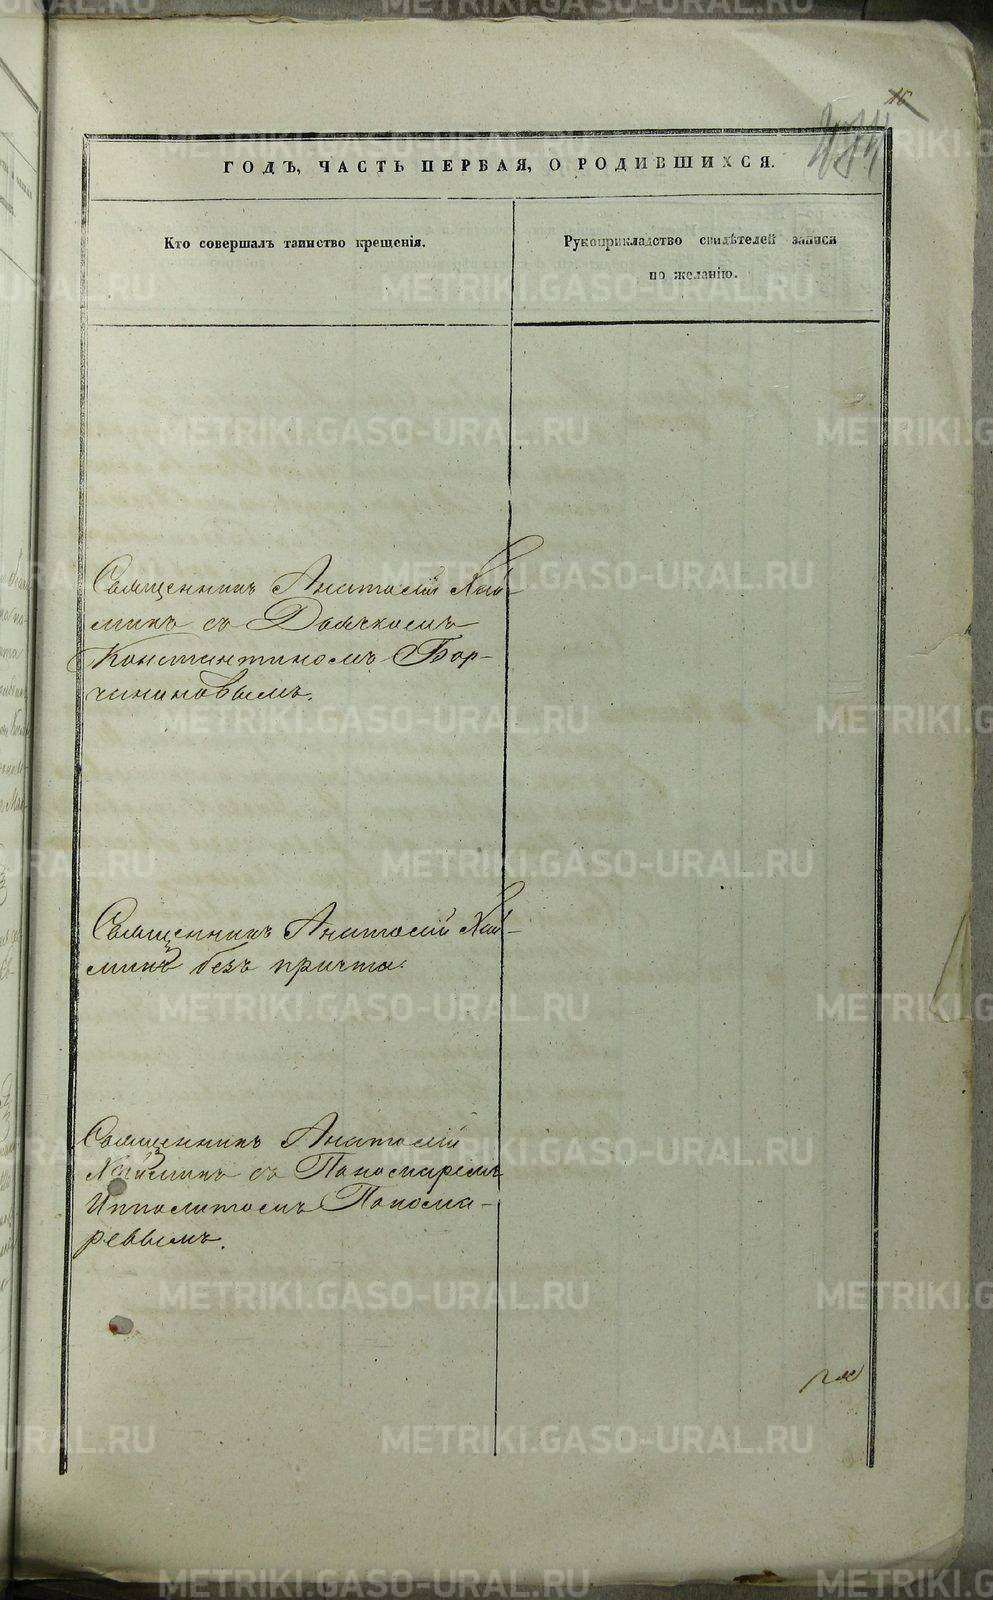 ГОДЪ, ЧАСТЬ ПЕРВАЯ, О РОДИВШИХСЯ.
Кто совершалъ таинство крещенія.
Рукоприкладство свидѣтелей записи
по желанію.
Священникъ Анатолій Хай-
минъ съ Дьячкомъ
Константиномъ Бор-
чаниновымъ.
Священникъ Анатолій Хай-
минъ безъ причта.
Священникъ Анатолій
Хайминъ съ Пономаремъ
Ипполитомъ Понома-
ревымъ.
METRIKI.GASO-URAL.RU